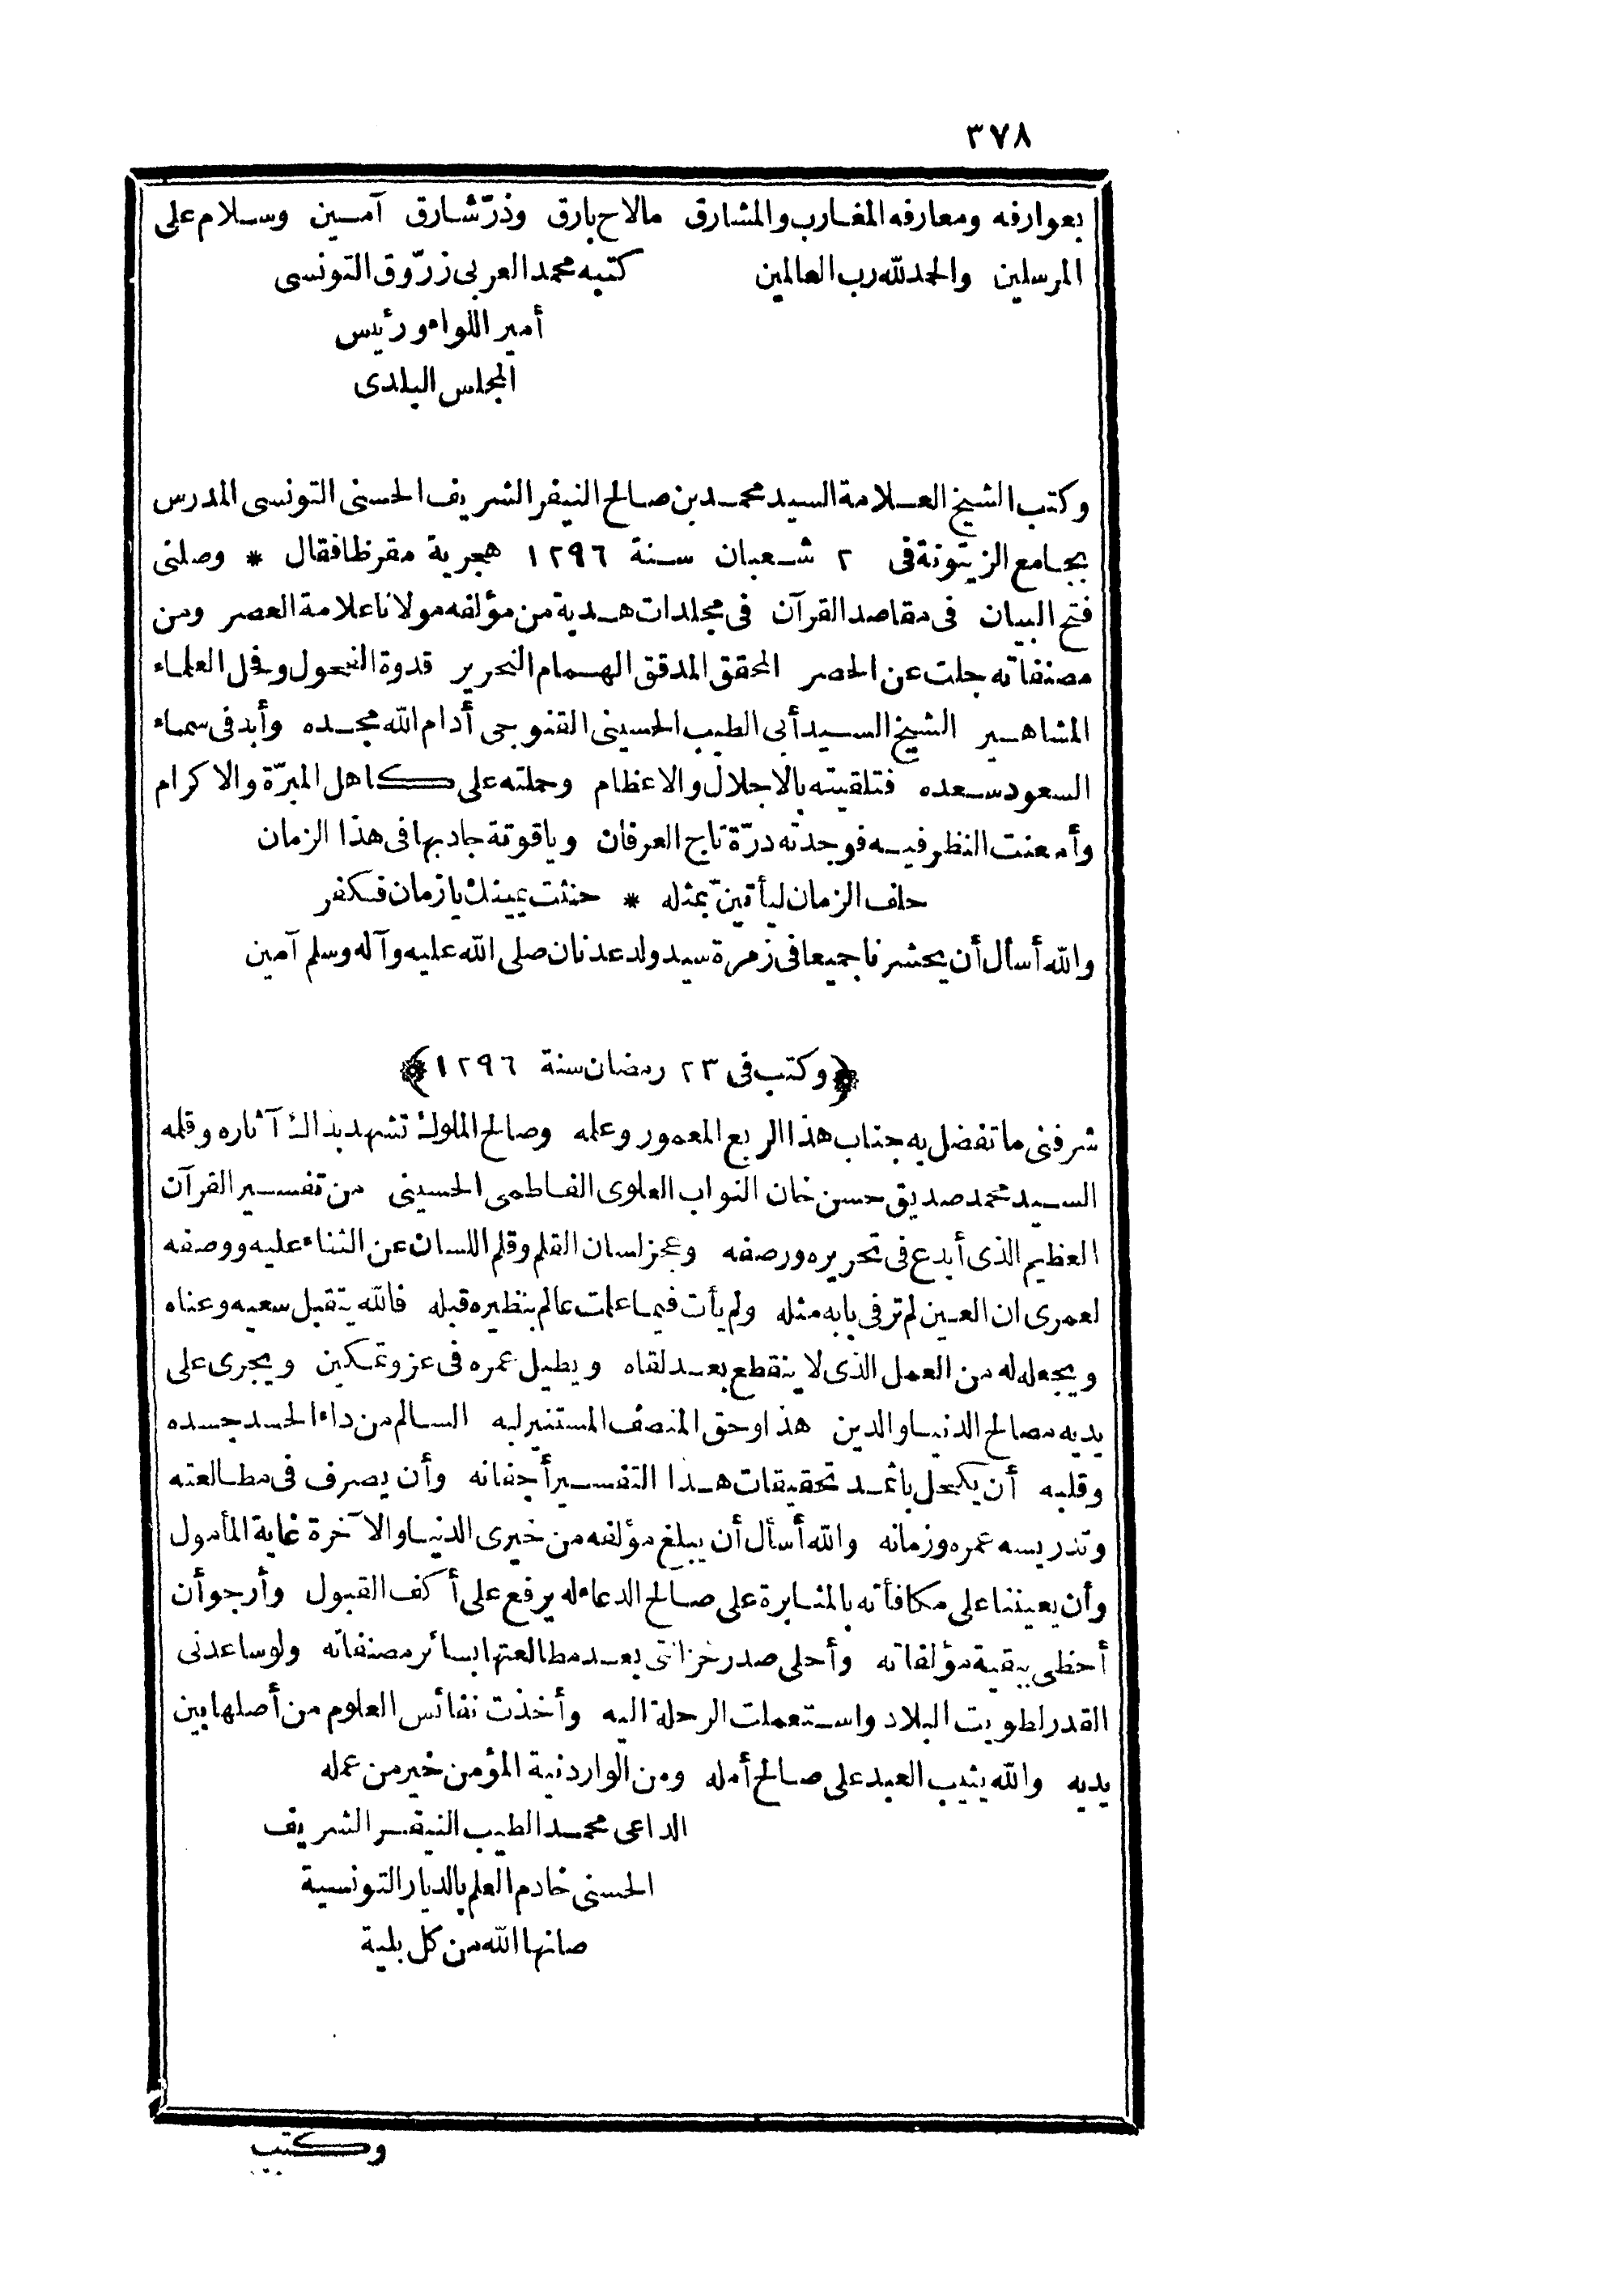 ٣٧٨
بعوارفه ومعارفه المغارب والمشارق مالاح بارق وذرّ شارق آمين وسلام على
المرسلين والحمد لله رب العالمين كتبه محمد العربى زرّوق التونسى
أمير اللواء ورئيس
المجلس البلدى
وكتب الشيخ العلامة السيد محمد بن صالح النيفر الشريف الحسنى التونسى المدرس
بجامع الزيتونة فى ٢ شعبان سنة ١٢٩٦ هجرية مقرظا فقال * وصلنى
فتح البيان فى مقاصد القرآن فى مجلدات هدية من مؤلفه مولانا علامة العصر ومن
مصنفاته جلت عن الحصر المحقق المدقق الهمام النحرير قدوة الفحول وفحل العلماء
المشاهير الشيخ السيد أبى الطيب الحسينى القنوجى أدام الله مجده وأبد فى سماء
السعود سعده فتلقيته بالاجلال والاعظام وحملته على كاهل المبرّة والاكرام
وأمعنت النظر فيه فوجدته درّة تاج العرفان وياقوتة جاد بها فى هذا الزمان
حلف الزمان ليأتينّ بمثله * حنثت يمينك يا زمان فكفر
والله أسأل أن يحشرنا جميعا فى زمرة سيد ولد عدنان صلى الله عليه وآله وسلم آمين
﴿وكتب فى ٢٣ رمضان سنة ١٢٩٦﴾
شرفنى ما تفضل به جناب هذا الربع المعمور وعلمه وصالح الملوك تشهد بذاك آثاره وقلمه
السيد محمد صديق حسن خان النواب العلوى الفاطمى الحسينى من تفسير القرآن
العظيم الذى أبدع فى تحريره ورصفه وعجز لسان القلم وقلم اللسان عن الثناء عليه ووصفه
لعمرى ان العين لم تر فى بابه مثله ولم يأت فيما علمت عالم بنظيره قبله فالله يتقبل سعيه وعناه
ويجعله له من العمل الذى لا ينقطع بعد لقاه ويطيل عمره فى عز وتمكين ويجرى على
يديه مصالح الدنيا والدين هذا وحق المنصف المستنير لبه السالم من داء الحسد جسده
وقلبه أن يكحل باثمد تحقيقات هذا التفسير أجفانه وأن يصرف فى مطالعته
وتدريسه عمره وزمانه والله أسأل أن يبلغ مؤلفه من خيرى الدنيا والآخرة غاية المأمول
وأن يعيننا على مكافأته بالمثابرة على صالح الدعاء له يرفع على أكف القبول وأرجو أن
أحظى ببقية مؤلفاته وأحلى صدر خزانتى بعد مطالعتها بسائر مصنفاته ولو ساعدنى
القدر لطويت البلاد واستعملت الرحلة اليه وأخذت نفائس العلوم من أصلها بين
يديه والله يثيب العبد على صالح أمله ومن الوارد نية المؤمن خير من عمله
الداعى محمد الطيب النيفر الشريف
الحسنى خادم العلم بالديار التونسية
صانها الله من كل بلية
وكتب